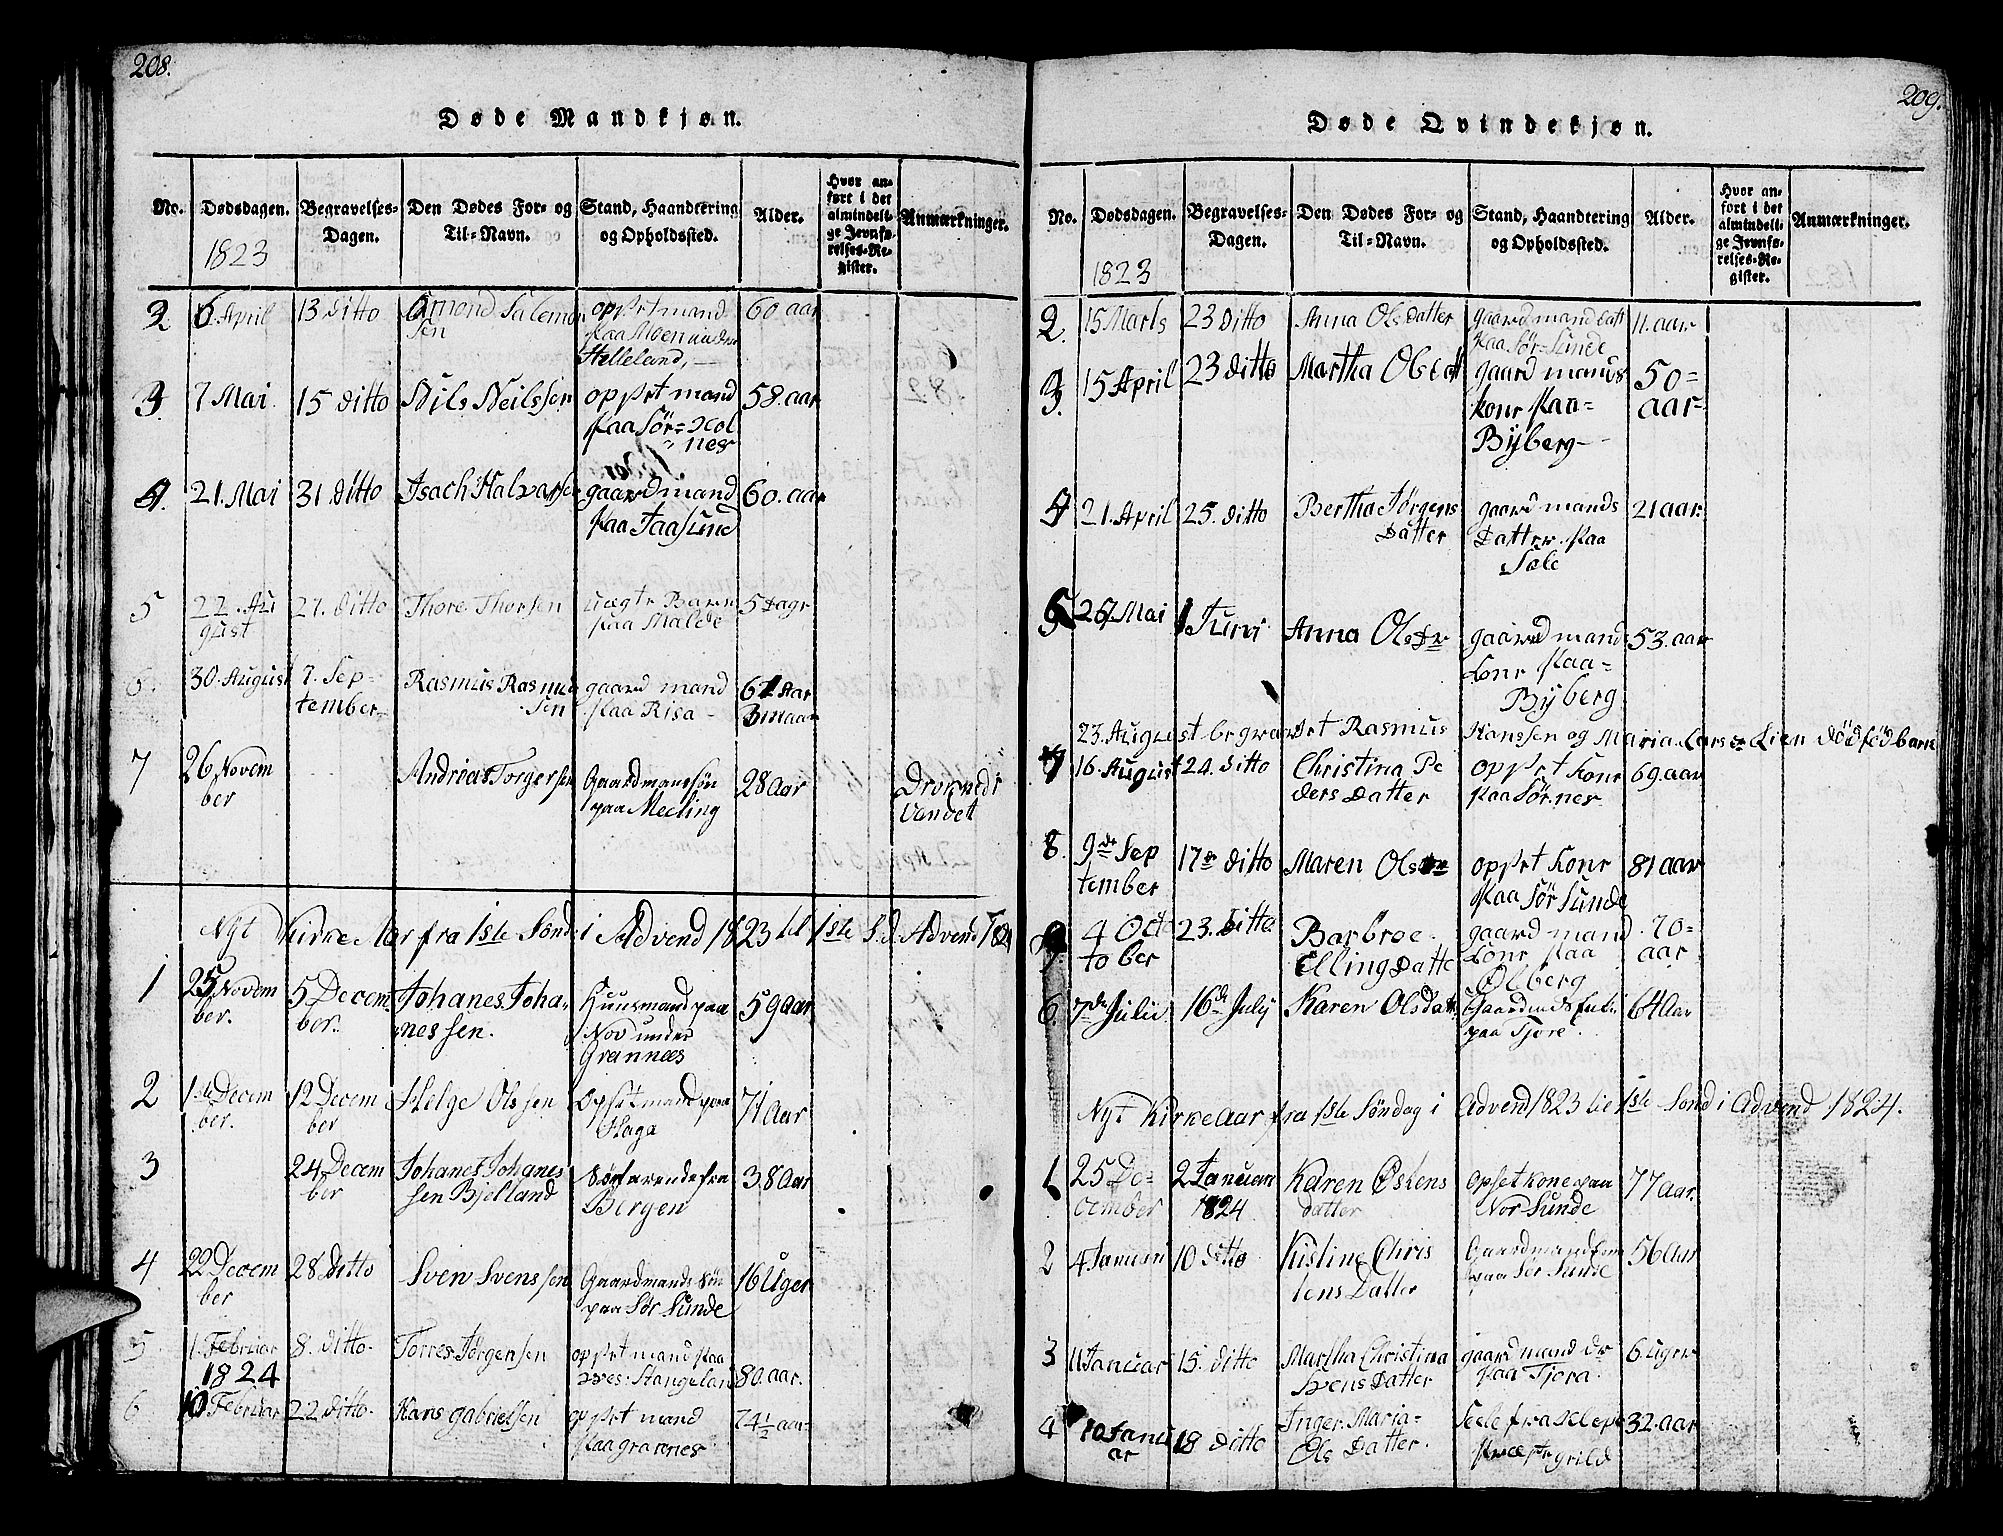 208.
Døde Mandkjøn.
No. Dødsdagen. Begravelses-Dagen. Den Dødes For- og Til-Navn. Stand, Haandtering og Opholdssted. Alder. Hvor anført i det almindelige Jevnførelses-Register. Anmærkninger.
1823
2 6 April 13 Ditto Salemonsen opsst mand paa Moen under Helleland, 60 aar
3. 7 Mai 15 ditto Nils Neilssen opsst mand paa Sör= Kolnes 58. aar
4. 21. Mai 31 ditto Isach Halvarsen gaardmand paa Taasund 60. aar
5 22. August 27. ditto Thore Thorsen uægte Barn paa Malde 5 Dage
6. 30. August 7. September Rasmus Rasmussen gaard mand paa Risa 3 maan
7 26 November Andrias Torgersen Gaardmanssøn paa Meeling 28 Aar Drocknedr Vandet
Nyt Kirke Aar fra 1ste Sönd i Advend 1823 til 1ste S.d. Advend 1824
1 25 November. 5 December. Johanes Johanessen. Huusmand paa Nov under Grannæs 59 aar
2 1ste December. 12 December Helge Olssen Opset mand paa Haga 71 Aar
3 24 December Johanes Johanessen Bjelland Søefarende fra Bergen 38 Aar
4 22 December 28 Ditto Sven Svenssen Gaardmands Søn paa Sør Sunde 16 Uger
5 1. Februar 1824 8. ditto Torres Jørgensen opsst mand paa Stangeland 80. aar.
6 10 Februar 22 ditto Hans gabrielsen opsst mand paa grannes 74½ aar
209.
Døde Qvindekjøn.
No. Dødsdagen. Begravelses-Dagen. Den Dødes For- og Til-Navn. Stand, Haandtering og Opholdssted. Alder. Hvor anført i det almindelige Jevnførelses-Register. Anmærkninger.
1823
2. 15 Marts 23 Ditto Anna Olsdatter gaardmand datt paa Sør= Sunde 11. aar
3. 15 April 23 ditto Martha Olsdatt gaard mands kone paa Byberg 50= aar
4 21. April 25. ditto Bertha Jörgens Datter gaard mands Datter paa Sæle 21 aar.
5 26 Mai 1 Juni Anna Olsdr gaard mands kone paa Byberg 53. aar
23. August begravet Rasmus Hanssen og Maria Lars dr Lien dödfød barn
7 16. August 24. ditto Christina Peders Datter opsst kone paa Sørnes 69. aar
8. 9de September 17de ditto Maren Olsdr opsst kone paa Sør Sunde 81 aar
9 4 October 23. ditto. Barbroe Elling Datte gaard mand kone paa Ölberg 70= aar
6. 7de Julii 16de July Karen Olsdatt paa Tjore. 64 Aar
Nyt Kirke Aar fra 1ste Söndag i Advend 1823 til 1ste Sönd i Advend 1824.
1 25 December 2 Januari 1824 Karen Østens datter opset kone paa Nor Sunde 77 Aar.
2 4 Januari 10 Ditto Kistine Chris tens Datter paa Sør Sunde 56 Aar
3 11 Januar 15. ditto Martha Christina Svens Datter gaard mand dr paa Tjora. 6 uger
4 10 Januar 18 ditto Inger Maria Ols Datter. fra Klepe 32. aar